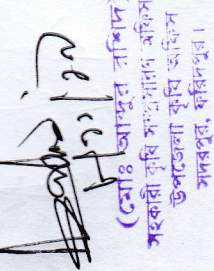 (মোঃ আব্দুর রশিদ)
সহকারী কৃষি সম্প্রসারণ অফিসার
উপজেলা কৃষি অফিস
সদরপুর, ফরিদপুর।